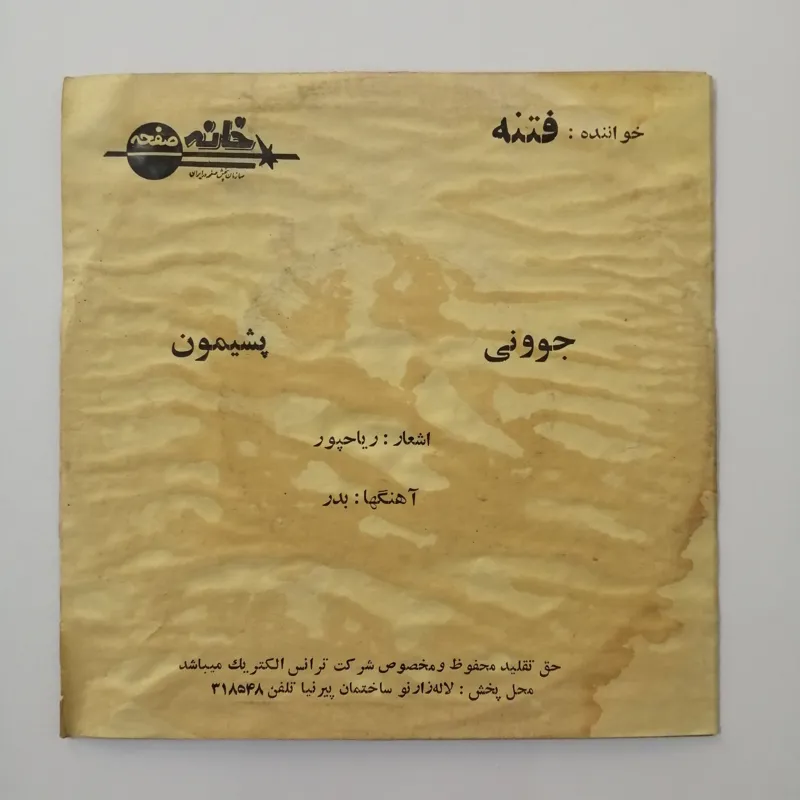 خواننده : فتنه
خانه صفحه
سازمان پخش صفحه در ایران
جوونی
پشیمون
اشعار : ریاحپور
آهنگها : بدر
حق تقلید محفوظ و مخصوص شرکت ترانس الکتریك میباشد
محل پخش : لاله‌زارنو ساختمان پیرنیا تلفن ۳۱۸۵۴۸